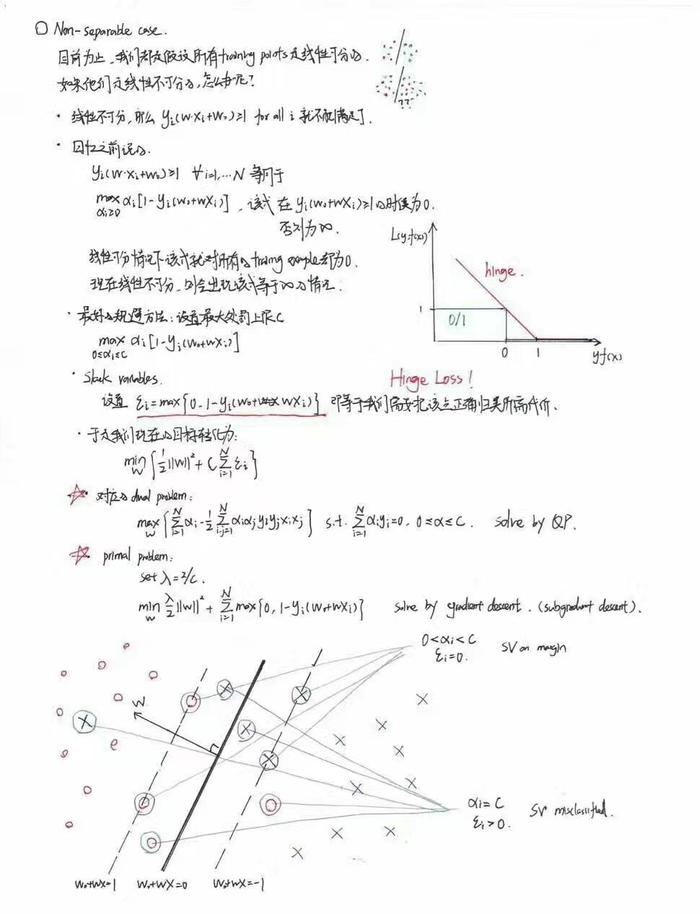 Non-separable case.
目前为止，我们都是假设所有training points是线性可分的.
如果他们是线性不可分的，怎么办呢？
??
· 线性不可分，那么 yi(w·xi+w0)≥1 for all i 就不能满足了.
· 因此之前说的.
yi(w·xi+w0)≥1 ∀i=1,…N 等同于
max αi≥0 αi[1-yi(w0+wxi)]，该式在 yi(w0+wxi)≥1的时候为0.
否则为∞.
线性可分情况下该式就对所有的training example都为0.
现在线性不可分，则会出现该式等于∞的情况.
L(y,f(x))
hinge.
1
0/1
0 1 y·f(x)
Hinge Loss!
· 最好的规避方法：设置最大处罚上限C
max 0≤αi≤C αi[1-yi(w0+wxi)]
· Slack variables.
设置 ξi=max{0, 1-yi(w0+wxi)} 即等于我们需要把该点正确归类所需代价.
· 于是我们现在的目标转化为:
min w {1/2||w||²+C∑ᵢ₌₁ᴺ ξi}
☆ 对应的dual problem:
max w {∑ᵢ₌₁ᴺ αi - 1/2 ∑ᵢ,ⱼ₌₁ᴺ αiαjyiyjxixj} s.t. ∑ᵢ₌₁ᴺ αiyi=0, 0≤α≤C. solve by QP.
☆ primal problem:
set λ=2/C.
min w λ/2||w||²+∑ᵢ₌₁ᴺ max{0, 1-yi(w0+wxi)} solve by gradient descent. (subgradient descent).
0<αi<C SV on margin
ξi=0.
w
αi=C SV misclassified.
ξi>0.
w0+wx=1 w0+wx=0 w0+wx=-1